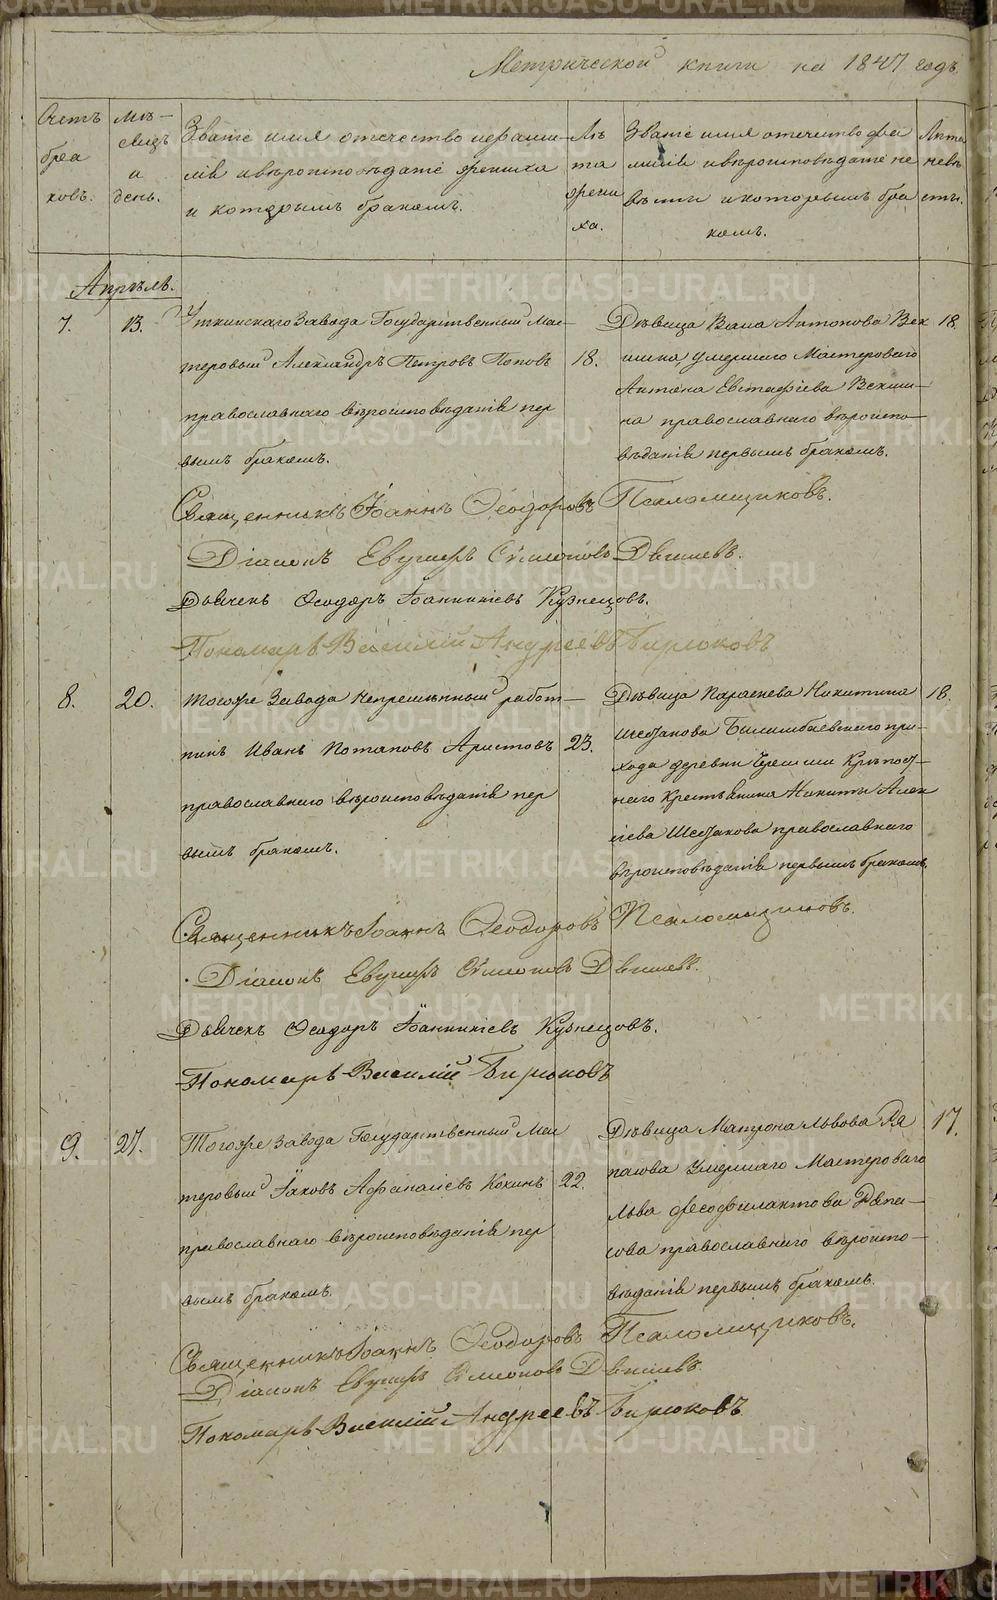 Метрической книги на 1847 годъ
Счетъ браковъ.
Мѣсяцъ и день.
Званіе имя отечество и фамилія и вѣроисповѣданіе жениха и которымъ бракомъ.
Лѣта жениха.
Званіе имя отечество фамилія и вѣроисповѣданіе невѣсты и которымъ бракомъ.
Лѣта невѣсты.
Апрѣль.
7. 13.
Уткинскаго Завода Государственный Мас-
теровый Александръ Петровъ Поповъ 18.
православнаго вѣроисповѣданія пер
вымъ бракомъ.
Дѣвица Антонова Век 18.
шина умершаго Мастероваго
Антона Евстафіева Векши-
на православнаго вѣроиспо-
вѣданія первымъ бракомъ.
Священникъ Іоаннъ Ѳеодоровъ Псаломщиковъ.
Діаконъ Евгенъ Симеоновъ
Дьячекъ Ѳеодоръ Іоанникіевъ Кузнецовъ.
Пономарь Василій Андреевъ Бирюковъ
8. 20.
Тогоже Завода Непремѣнный работ-
никъ Иванъ Потаповъ Аристовъ 23.
православнаго вѣроисповѣданія пер
вымъ бракомъ.
Дѣвица Параскева Никитина 18.
Билимбаевскаго при-
хода деревни Крѣпост-
наго Крестьянина Никиты Алек
сіева православнаго
вѣроисповѣданія первымъ бракомъ.
Священникъ Іоаннъ Ѳеодоровъ Псаломщиковъ.
Діаконъ Симеоновъ
Дьячекъ Ѳеодоръ Іоанникіевъ Кузнецовъ.
Пономарь Василій Бирюковъ
9. 27.
Тогоже Завода Государственный Мас
теровый Іаковъ Афанасіевъ Кокинъ 22.
православнаго вѣроисповѣданія пер
вымъ бракомъ.
Дѣвица Матрона Львова 17.
умершаго Мастероваго
Льва Феофилактова
православнаго вѣроиспо-
вѣданія первымъ бракомъ.
Священникъ Іоаннъ Ѳеодоровъ Псаломщиковъ.
Діаконъ Симеоновъ
Пономарь Василій Андреевъ Бирюковъ
METRIKI.GASO-URAL.RU